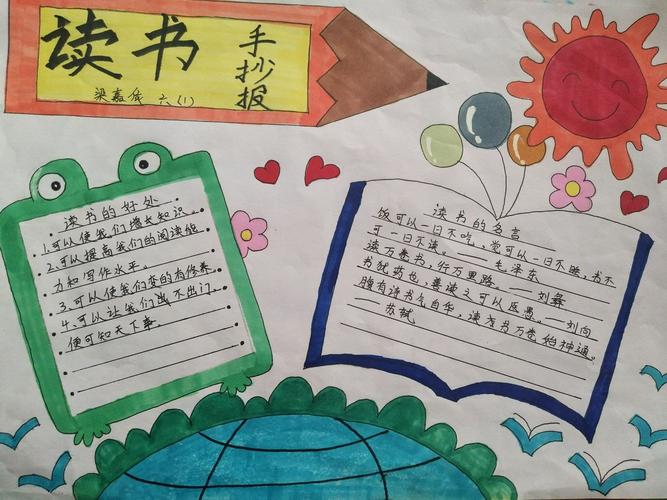 读书
手抄报
梁嘉依 六(1)
读书的好处
1.可以使我们增长知识。
2.可以提高我们的阅读能
力和写作水平。
3.可以使我们变的有修养
4.可以让我们战不出门,
便可知天下事。
读书的名言
饭可以一日不吃,觉可以一日不睡,书不
可一日不读。——毛泽东
读万卷书,行万里路。——刘彝
书犹药也,善读之可以医愚。——刘向
腹有诗书气自华,读书万卷始神通。
——苏轼